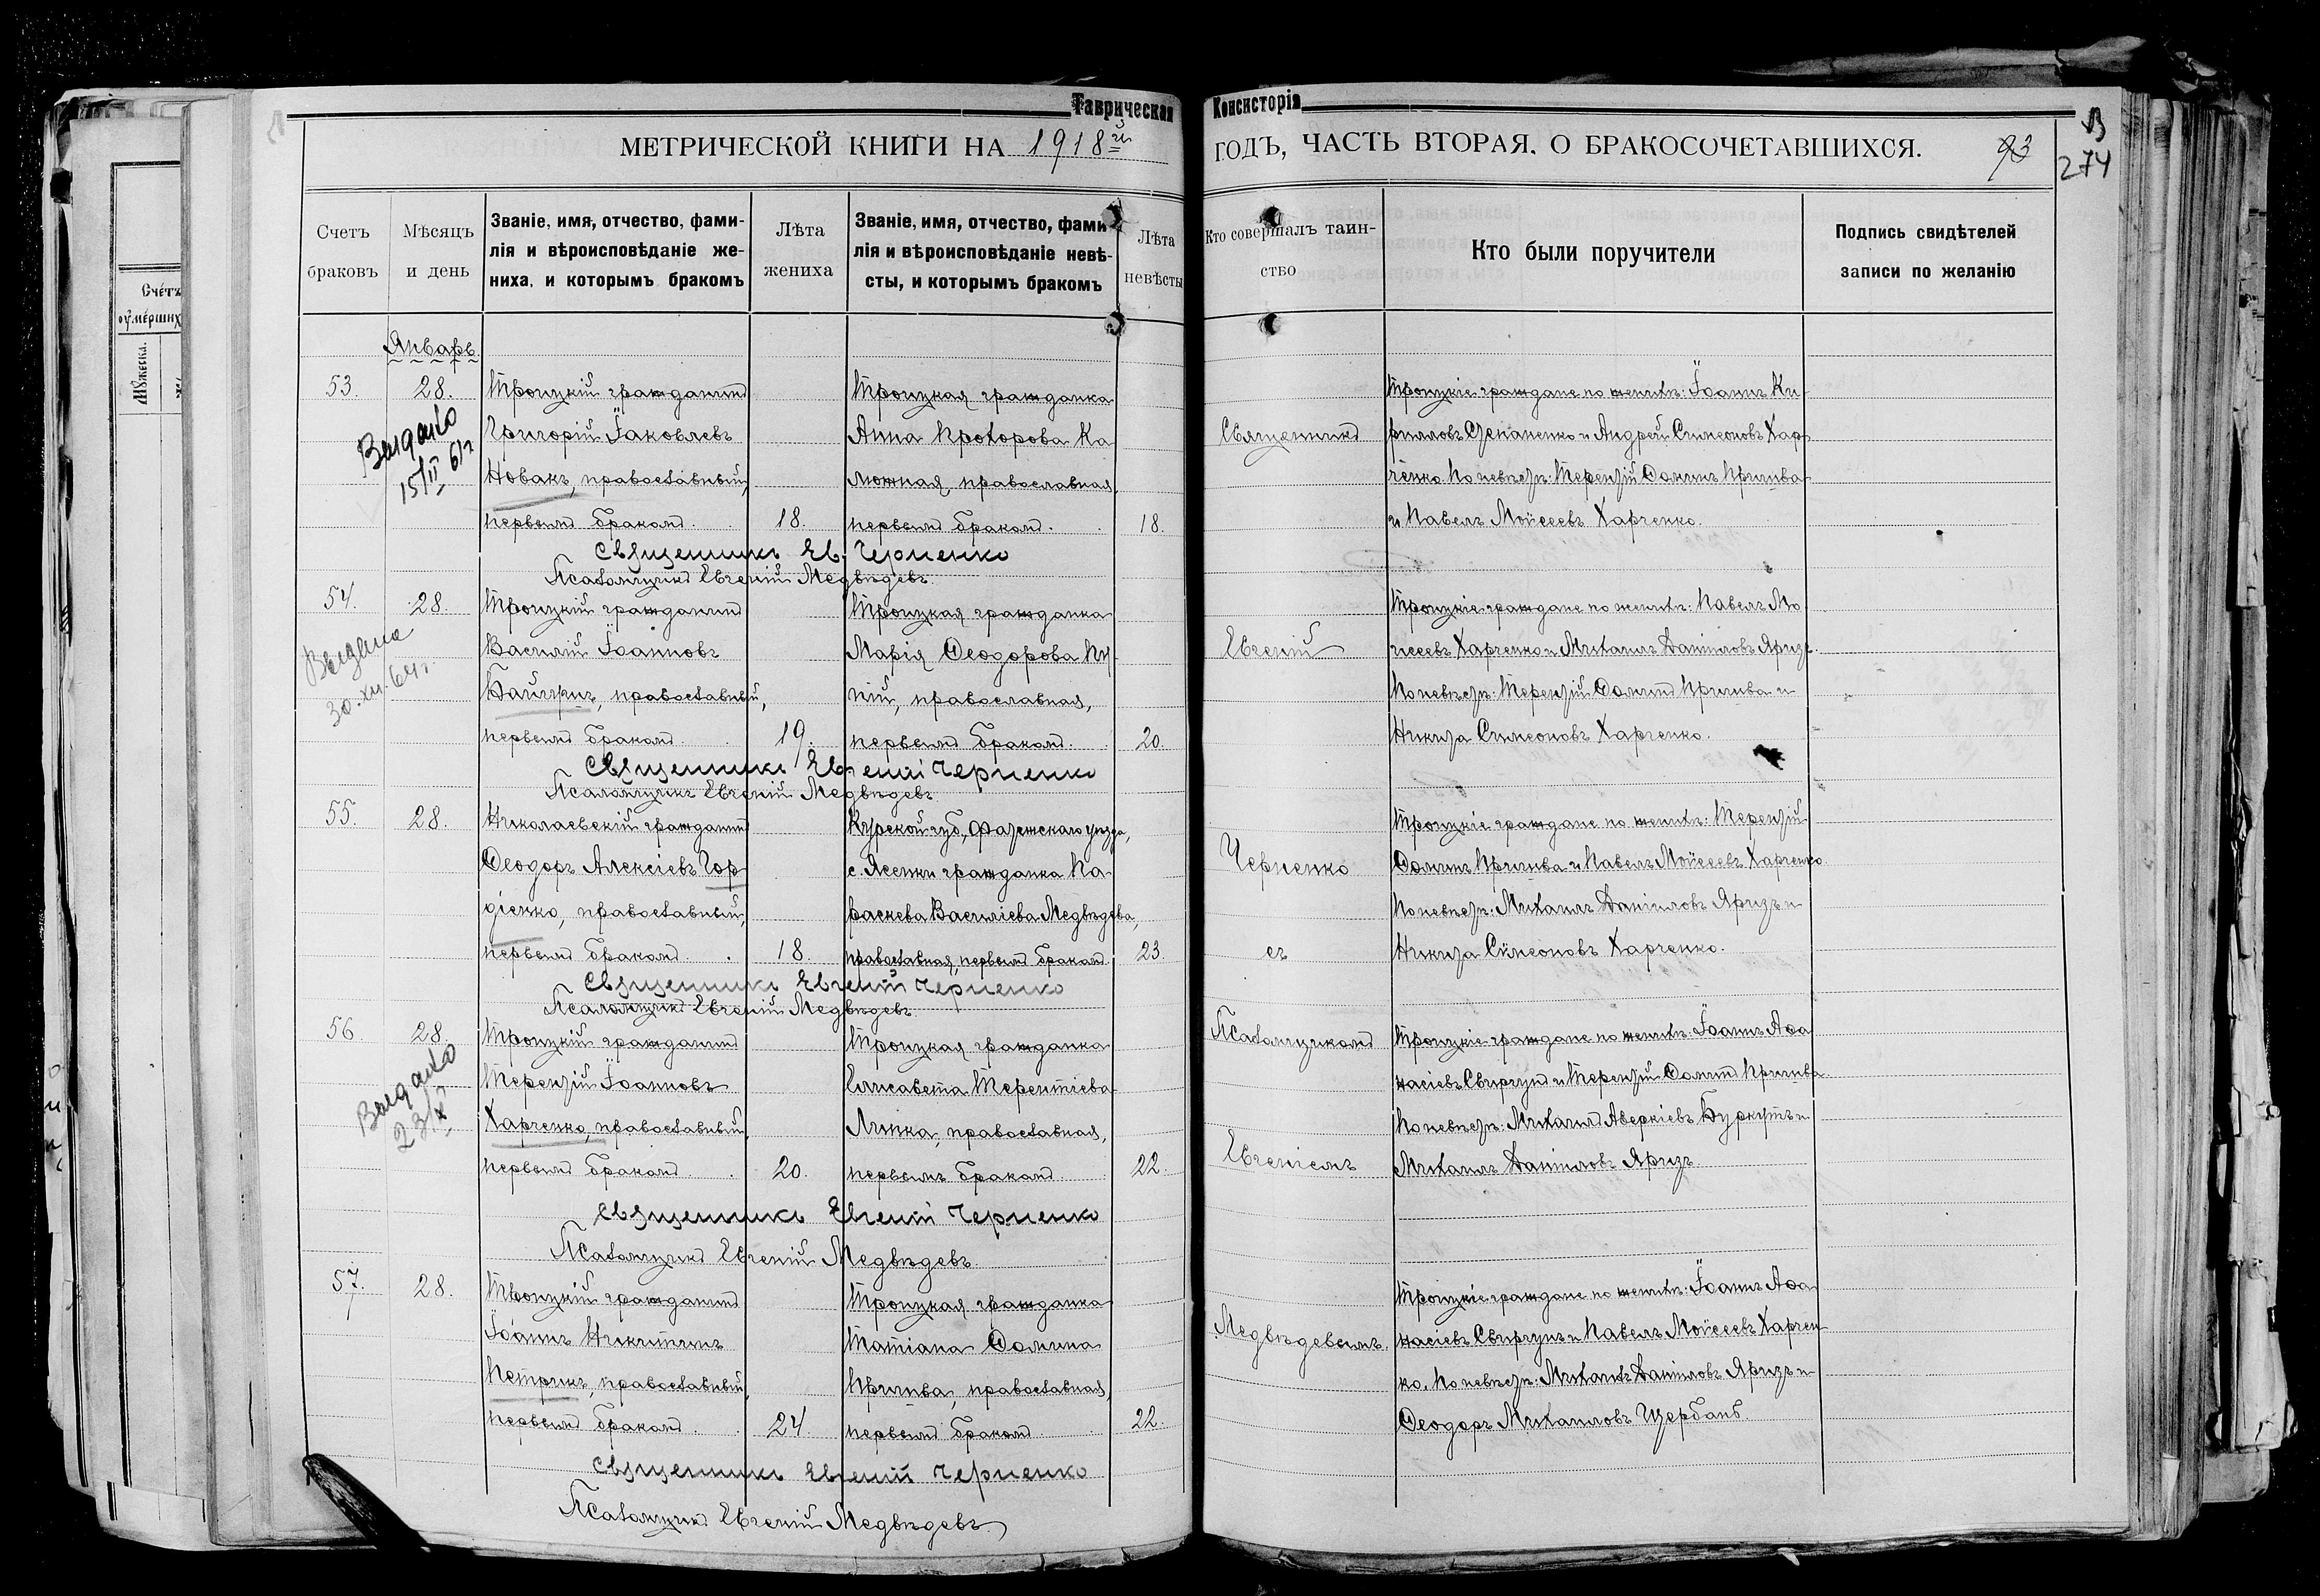 Таврическая Консисторія
МЕТРИЧЕСКОЙ КНИГИ НА 1918й ГОДЪ, ЧАСТЬ ВТОРАЯ, О БРАКОСОЧЕТАВШИХСЯ.
93
274
Счетъ браковъ
Мѣсяцъ и день
Званіе, имя, отчество, фами-
лія и вѣроисповѣданіе же-
ниха, и которымъ бракомъ
Лѣта жениха
Званіе, имя, отчество, фами-
лія и вѣроисповѣданіе невѣ-
сты, и которымъ бракомъ
Лѣта невѣсты
Кто совершалъ таин-
ство
Кто были поручители
Подпись свидѣтелей
записи по желанію
Счетъ
Январь
53.
28.
Троицкій гражданинъ
Григорій Іаковлевъ
Новакъ, православный,
первымъ бракомъ.
18.
Троицкая гражданка
Анна Прохорова Ка
южная, православная,
первымъ бракомъ.
18.
Троицкіе граждане по женихѣ: Іоаннъ Ки-
рилловъ Степаненко и Андрей Симеоновъ Хар-
ченко. По невѣстѣ: Терентій Ѳоминъ Притыва
и Павелъ Моисеевъ Харченко.
15/II 61г
Священникъ Ев. Черненко
Псаломщикъ Евгеній Медвѣдевъ.
54.
28.
Выдана
30.XII.64г.
Троицкій гражданинъ
Василій Іоанновъ
православный,
первымъ бракомъ.
19.
Троицкая гражданка
Марія Ѳеодорова Ку-
пій, православная,
первымъ бракомъ.
20.
Троицкіе граждане по женихѣ: Павелъ Мо
исеевъ Харченко и Михаилъ Даніиловъ Яризъ.
По невѣстѣ: Терентій Ѳоминъ Притыва и
Никита Симеоновъ Харченко.
Священникъ Евгеній Черненко
Псаломщикъ Евгеній Медвѣдевъ.
55.
28.
Николаевскій гражданинъ
Ѳеодоръ Алексіевъ Гор
діенко, православный,
первымъ бракомъ.
18
Курской губ., Фатежскаго уѣзда,
с. Ясенки гражданка Па
раскева Василіева Медвѣдева,
православная, первымъ бракомъ.
23.
Троицкіе граждане по женихѣ: Терентій
Ѳоминъ Притыва и Павелъ Моисеевъ Харченко.
По невѣстѣ: Михаилъ Даніиловъ Яризъ и
Никита Симеоновъ Харченко.
Священникъ Евгеній Черненко
Псаломщикъ Евгеній Медвѣдевъ.
56
28.
23/X
Троицкій гражданинъ
Терентій Іоанновъ
Харченко, православный,
первымъ бракомъ.
20.
Троицкая гражданка
Елисавета Терентіева
Линка, православная,
первымъ бракомъ.
22.
Троицкіе граждане по женихѣ: Іоаннъ Аѳа
насіевъ Свиргунъ и Терентій Ѳоминъ Притыва.
По невѣстѣ: Михаилъ Аверкіевъ Буркутъ и
Михаилъ Даніиловъ Яризъ.
Священникъ Евгеній Черненко
Псаломщикъ Евгеній Медвѣдевъ.
57.
28.
Троицкій гражданинъ
Іоаннъ Никитинъ
Петрикъ, православный,
первымъ бракомъ.
24
Троицкая гражданка
Татіана Ѳомина
Притыва, православная,
первымъ бракомъ.
22.
Троицкіе граждане по женихѣ: Іоаннъ Аѳа
насіевъ Свиргунъ и Павелъ Моисеевъ Харчен-
ко. По невѣстѣ: Михаилъ Даніиловъ Яризъ и
Ѳеодоръ Михаиловъ Щербань.
Священникъ Евгеній Черненко
Псаломщикъ Евгеній Медвѣдевъ.
Священникъ
Евгеній
Черненко
съ
Псаломщикомъ
Евгеніемъ
Медвѣдевымъ.